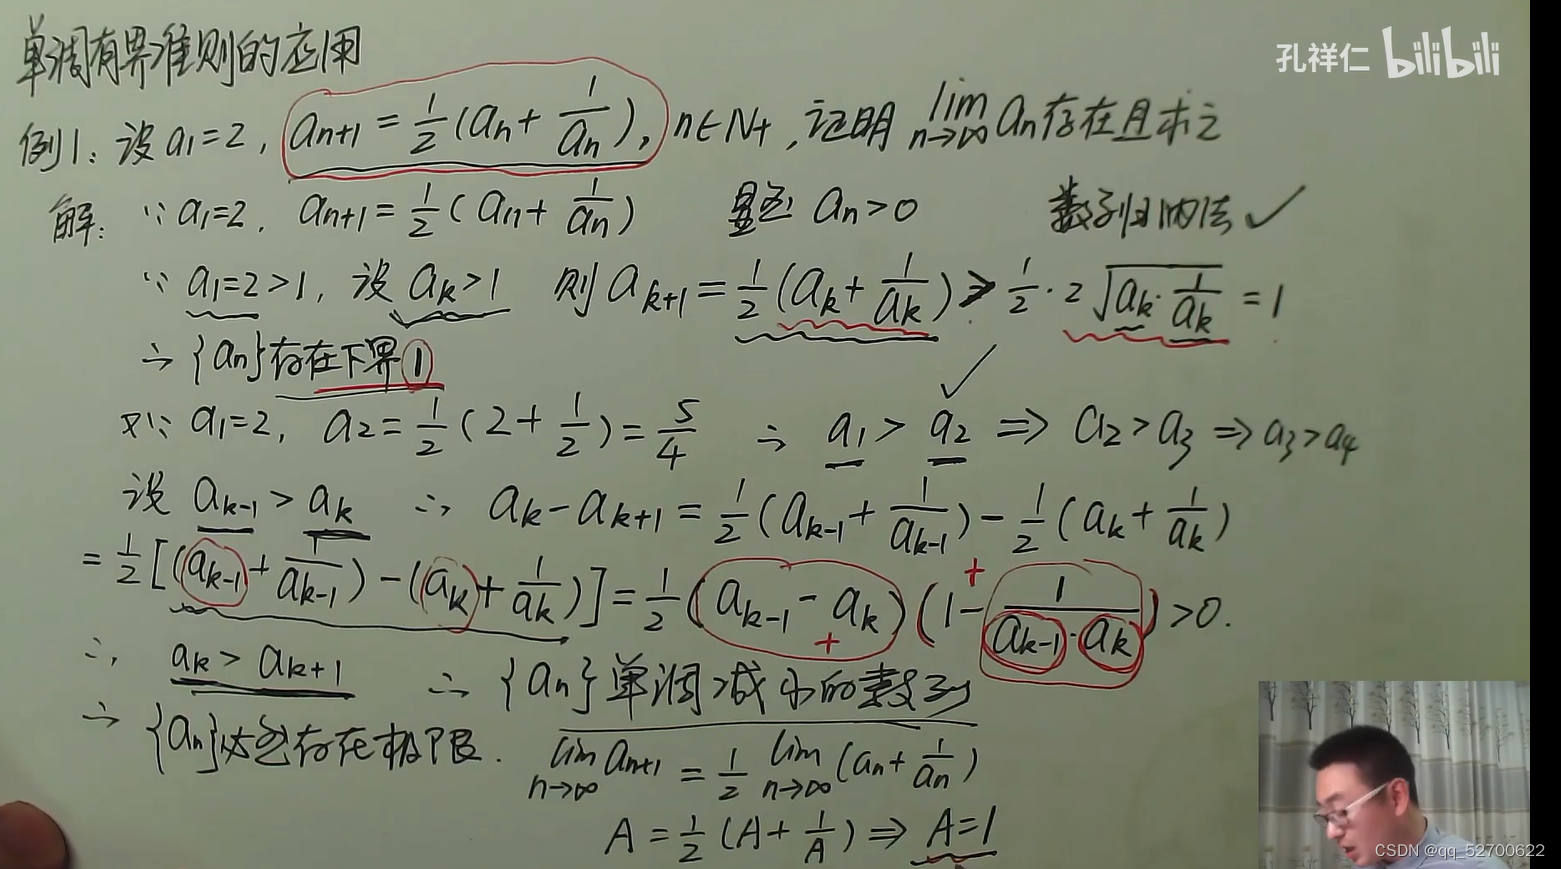 孔祥仁 bilibili
单调有界准则的应用
例1: 设 a₁=2, aₙ₊₁ = 1/2 (aₙ + 1/aₙ), n∈N₊, 证明 lim n→∞ aₙ 存在且求之
解: ∵ a₁=2, aₙ₊₁ = 1/2 (aₙ + 1/aₙ) 显然 aₙ>0 数学归纳法 ✓
∵ a₁=2>1, 设 aₖ>1 则 aₖ₊₁ = 1/2 (aₖ + 1/aₖ) > 1/2 · 2 √(aₖ · 1/aₖ) = 1
∴ {aₙ}存在下界① ✓
又∵ a₁=2, a₂ = 1/2 (2 + 1/2) = 5/4 ∴ a₁ > a₂ ⇒ a₂ > a₃ ⇒ a₃ > a₄
设 aₖ₋₁ > aₖ ∴ aₖ - aₖ₊₁ = 1/2 (aₖ₋₁ + 1/aₖ₋₁) - 1/2 (aₖ + 1/aₖ)
= 1/2 [(aₖ₋₁ + 1/aₖ₋₁) - (aₖ + 1/aₖ)] = 1/2 (aₖ₋₁ - aₖ) (1 - 1/(aₖ₋₁ · aₖ)) > 0.
+ +
∴ aₖ > aₖ₊₁ ∴ {aₙ}单调减小的数列
∴ {aₙ}必存在极限. lim n→∞ aₙ₊₁ = 1/2 lim n→∞ (aₙ + 1/aₙ)
A = 1/2 (A + 1/A) ⇒ A=1
CSDN @qq_52700622